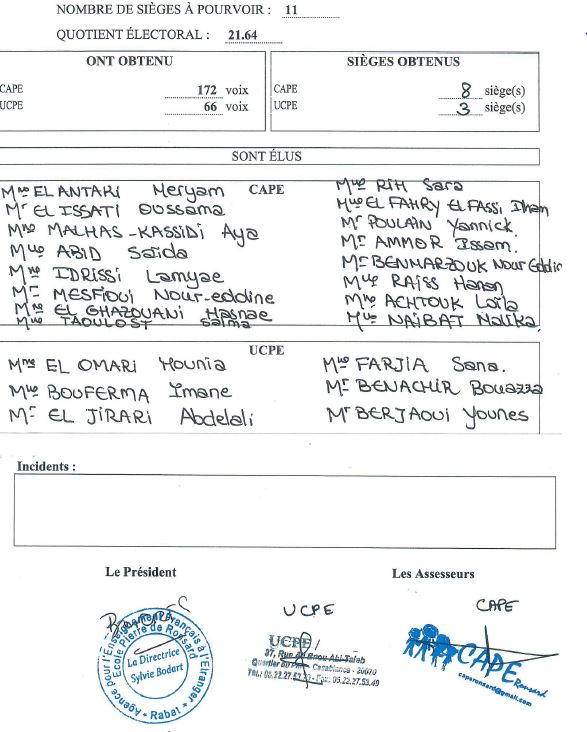 NOMBRE DE SIÈGES À POURVOIR : 11
QUOTIENT ÉLECTORAL : 21.64
ONT OBTENU
CAPE 172 voix
UCPE 66 voix
SIÈGES OBTENUS
CAPE 8 siège(s)
UCPE 3 siège(s)
SONT ÉLUS
CAPE
Mme EL ANTARI Meryam
Mr EL ISSATI Oussama
Mme MALHAS-KASSIDI Aya
Mme ABID Saïda
Mme IDRISSI Lamyae
Mr MESFIOUI Nour-eddine
Mme EL GHAZOUANI Hasnae
Mme TAOULOST Salma
Mme RIH Sara
Mme EL FAHRY ELFASSI Ilham
Mr POULAIN Yannick.
Mr AMMOR Issam.
Mr BENMARZOUK Nour Eddin
Mme RAISS Hanan
Mme ACHTOUK Laïla
Mme NAIBAT Malika.
UCPE
Mme EL OMARI Mounia
Mme BOUFERMA Imane
Mr EL JIRARI Abdelali
Mme FARJIA Sana.
Mr BENACHIR Bouazza
Mr BERJAOUI Younes
Incidents :
Le Président
Les Assesseurs
Agence pour l'Enseignement Français à l'Étranger
Ecole Pierre de Ronsard
La Directrice
Sylvie Bodart
* Rabat *
UCPE
UCPE
37, Rue Abou Ali Taleb
Casablanca - 20070
CAPE
CAPE Ronsard
caperonsard@gmail.com